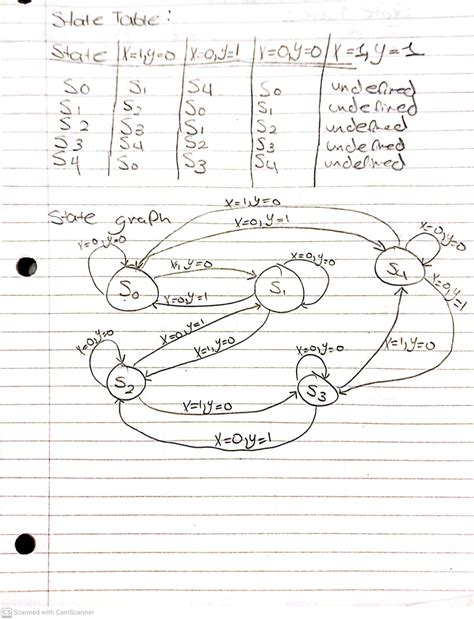 State Table:
State X=1,y=0 X=0,y=1 X=0,y=0 X=1,y=1
S0 S1 S4 S0 undefined
S1 S2 S0 S1 undefined
S2 S3 S1 S2 undefined
S3 S4 S2 S3 undefined
S4 S0 S3 S4 undefined
State graph
X=1,y=0
X=0,y=1
X=0,y=0
X=0,y=0
X=0,y=0
X=0,y=1
S0
X=0,y=1
S1
S4
X=0,y=1
X=0,y=0
X=1,y=0
X=0,y=0
X=1,y=0
S2
S3
X=1,y=0
X=0,y=1
CS Scanned with CamScanner